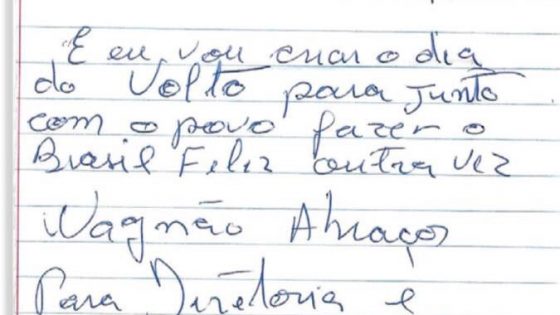 E eu vou criar o dia
do Volto para junto
com o povo fazer o
Brasil Feliz outra vez
Wagnão Abraços
Para Diretoria e